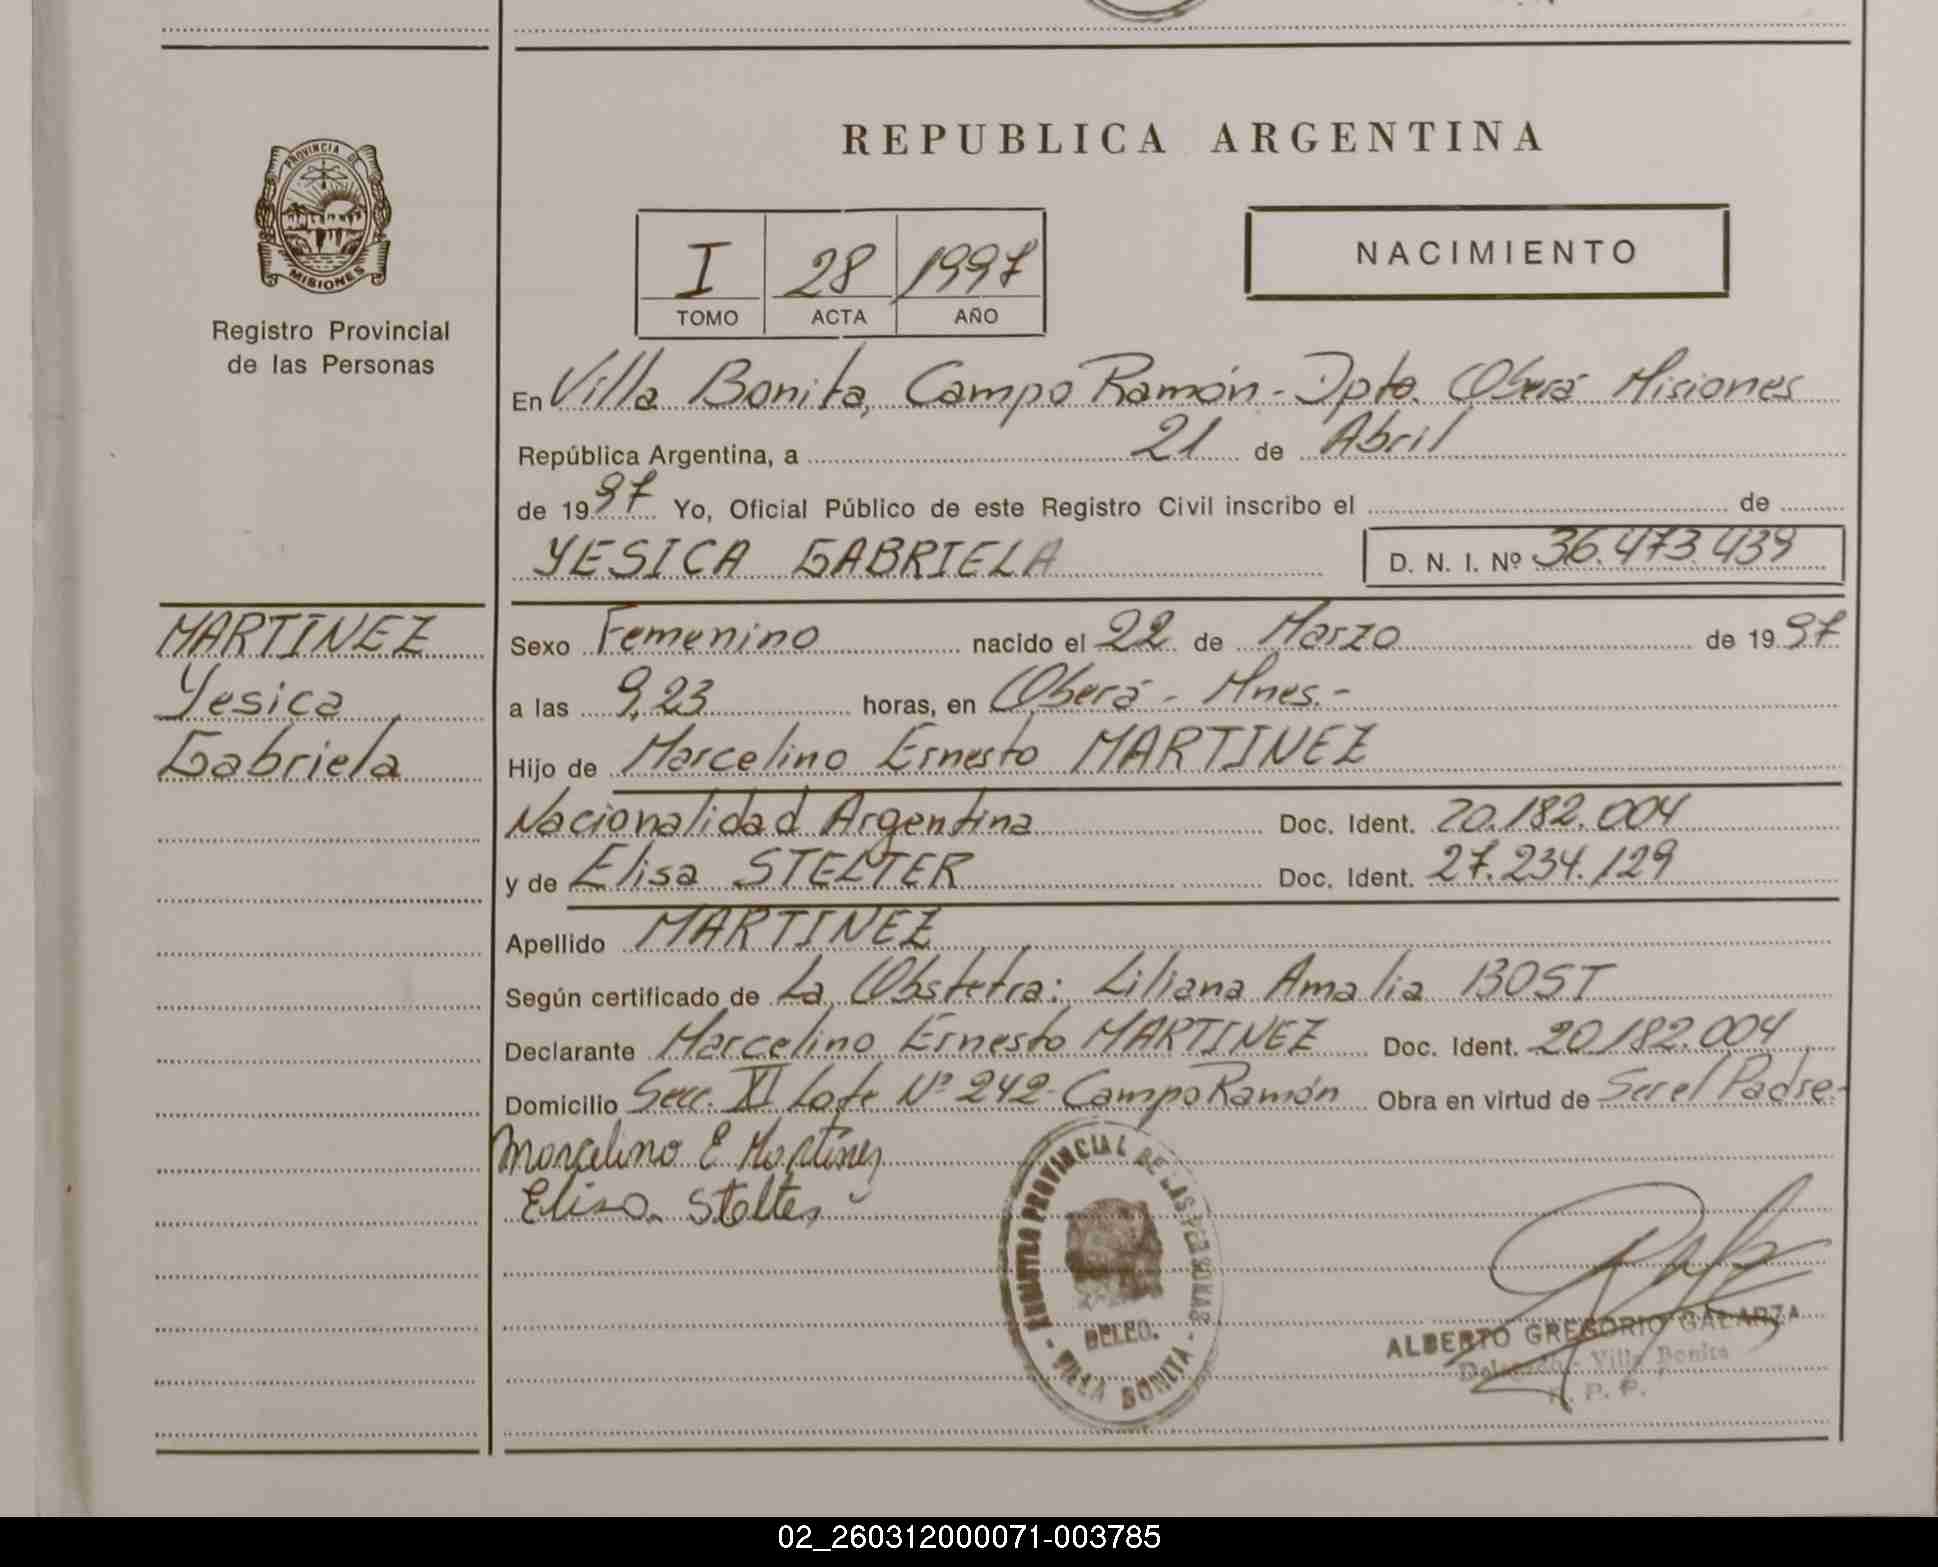 REPUBLICA ARGENTINA
PROVINCIA DE
MISIONES
Registro Provincial
de las Personas
I 28 1997
TOMO ACTA AÑO
NACIMIENTO
En Villa Bonita, Campo Ramón - Dpto. Oberá Misiones
República Argentina, a 21 de Abril
de 1997 Yo, Oficial Público de este Registro Civil inscribo el de
YESICA GABRIELA D. N. I. Nº 36.473.439
MARTINEZ
Yesica
Gabriela
Sexo Femenino nacido el 22 de Marzo de 1997
a las 9,23 horas, en Oberá - Mnes.-
Hijo de Marcelino Ernesto MARTINEZ
Nacionalidad Argentina Doc. Ident. 20.182.004
y de Elisa STELTER Doc. Ident. 27.234.129
Apellido MARTINEZ
Según certificado de La Obstetra: Liliana Amalia BOST
Declarante Marcelino Ernesto MARTINEZ Doc. Ident. 20.182.004
Domicilio Secc. XI Lote Nº 242- Campo Ramón Obra en virtud de Ser el Padre.-
Marcelino E Martinez
Elisa Stelter
REGISTRO PROVINCIAL DE LAS PERSONAS
DELEG.
- VILLA BONITA -
ALBERTO GREGORIO GALARZA
Delegado - Villa Bonita
R. P. P.
02_260312000071-003785